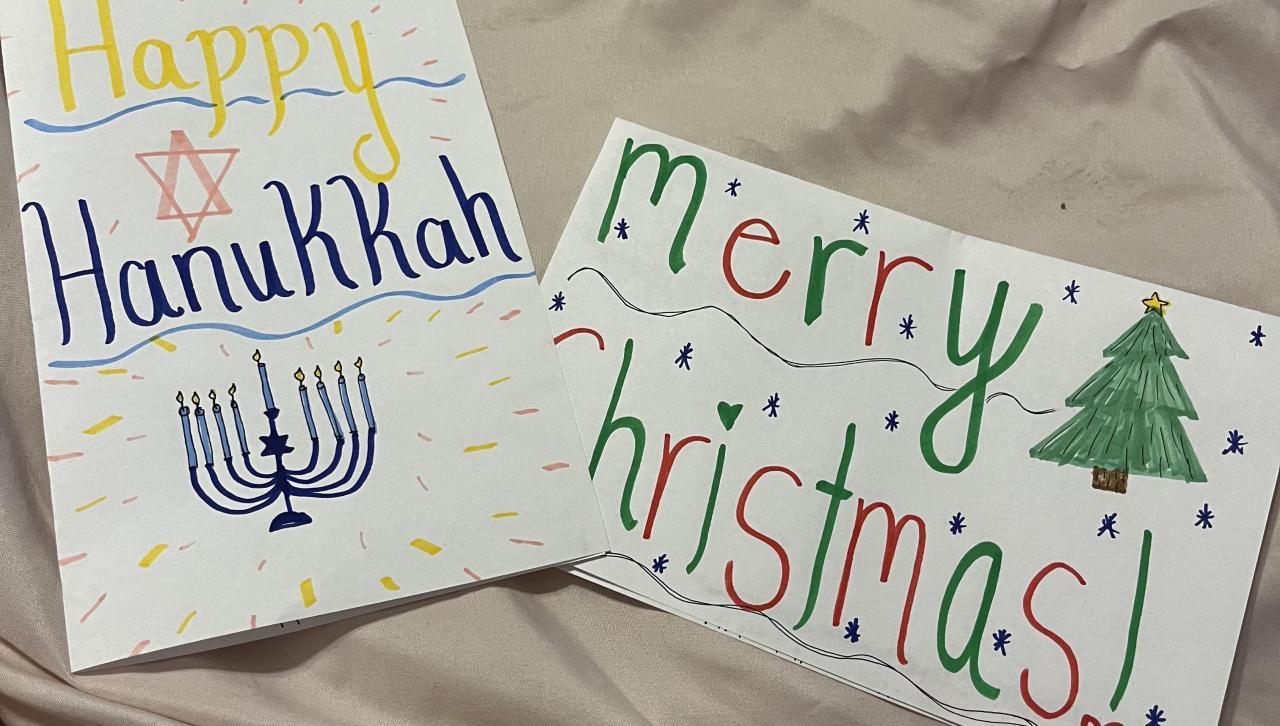 Happy
Hanukkah
merry
christmas!